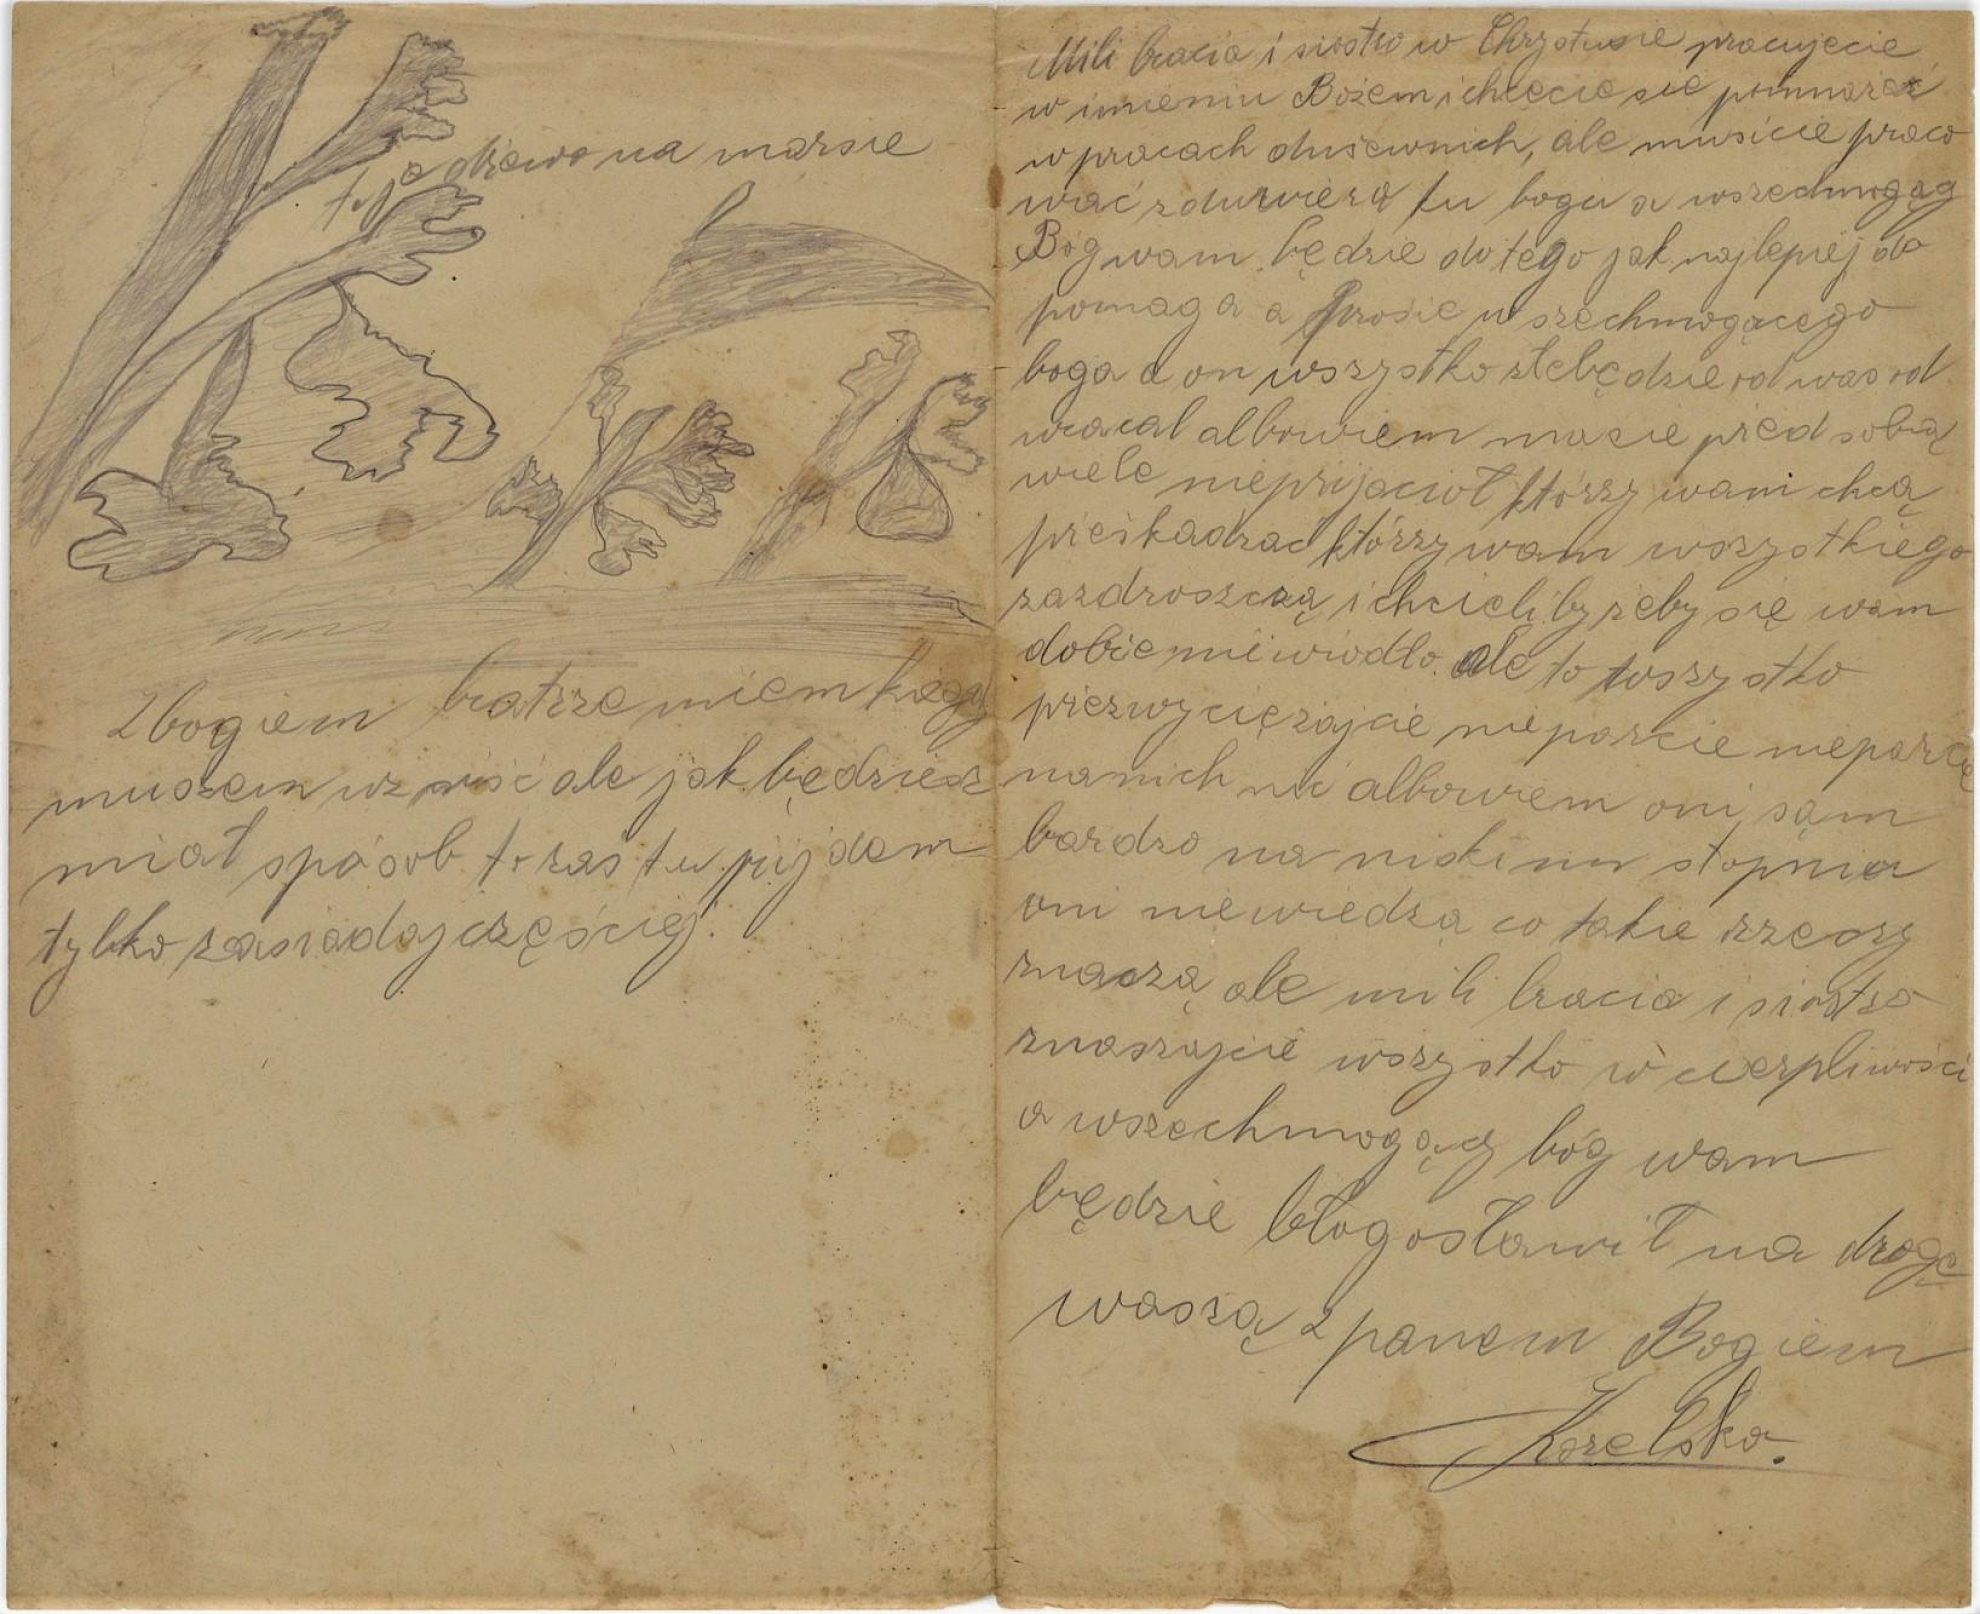 to je drzewo na marsie
Zbogiem bratrze niem kiegaj
muszem uz niść ale jak będziesz
miał sposob to zas tu pijdem
tylko zasiadaj częściej.
Mili bracia i siostro w Chrystusie pracujecie
w imieniu Bożem i chcecie sie pomnażać
w pracach dusewnich, ale musicie praco
wać zduwierą ku bogu a wszechmogąg
Bóg wam będzie do tego jak najlepiej do
pomaga a prosie wszechmogącego
boga a on wszystko złe będzie od was od
wracal albowiem macie pred sobią
wiele nieprijaciół którzy wam chcą
preskadzac którzy wam wszystkiego
zazdroszczą i chcieli by żeby się wam
dobrze niewiodło. ale to wszystko
prezwyciężajcie nieparcie nieparce
na nich nic albowiem oni sąm
bardzo na niskim stopnia
oni niewiedzą co takie rzeczy
znaczą ale mili bracia i siostro
znaszajcie wszystko w cierpliwości
a wszechmogący bóg wam
będzie błogosławił na drogę
waszą z panem Bogiem
Kozelska.